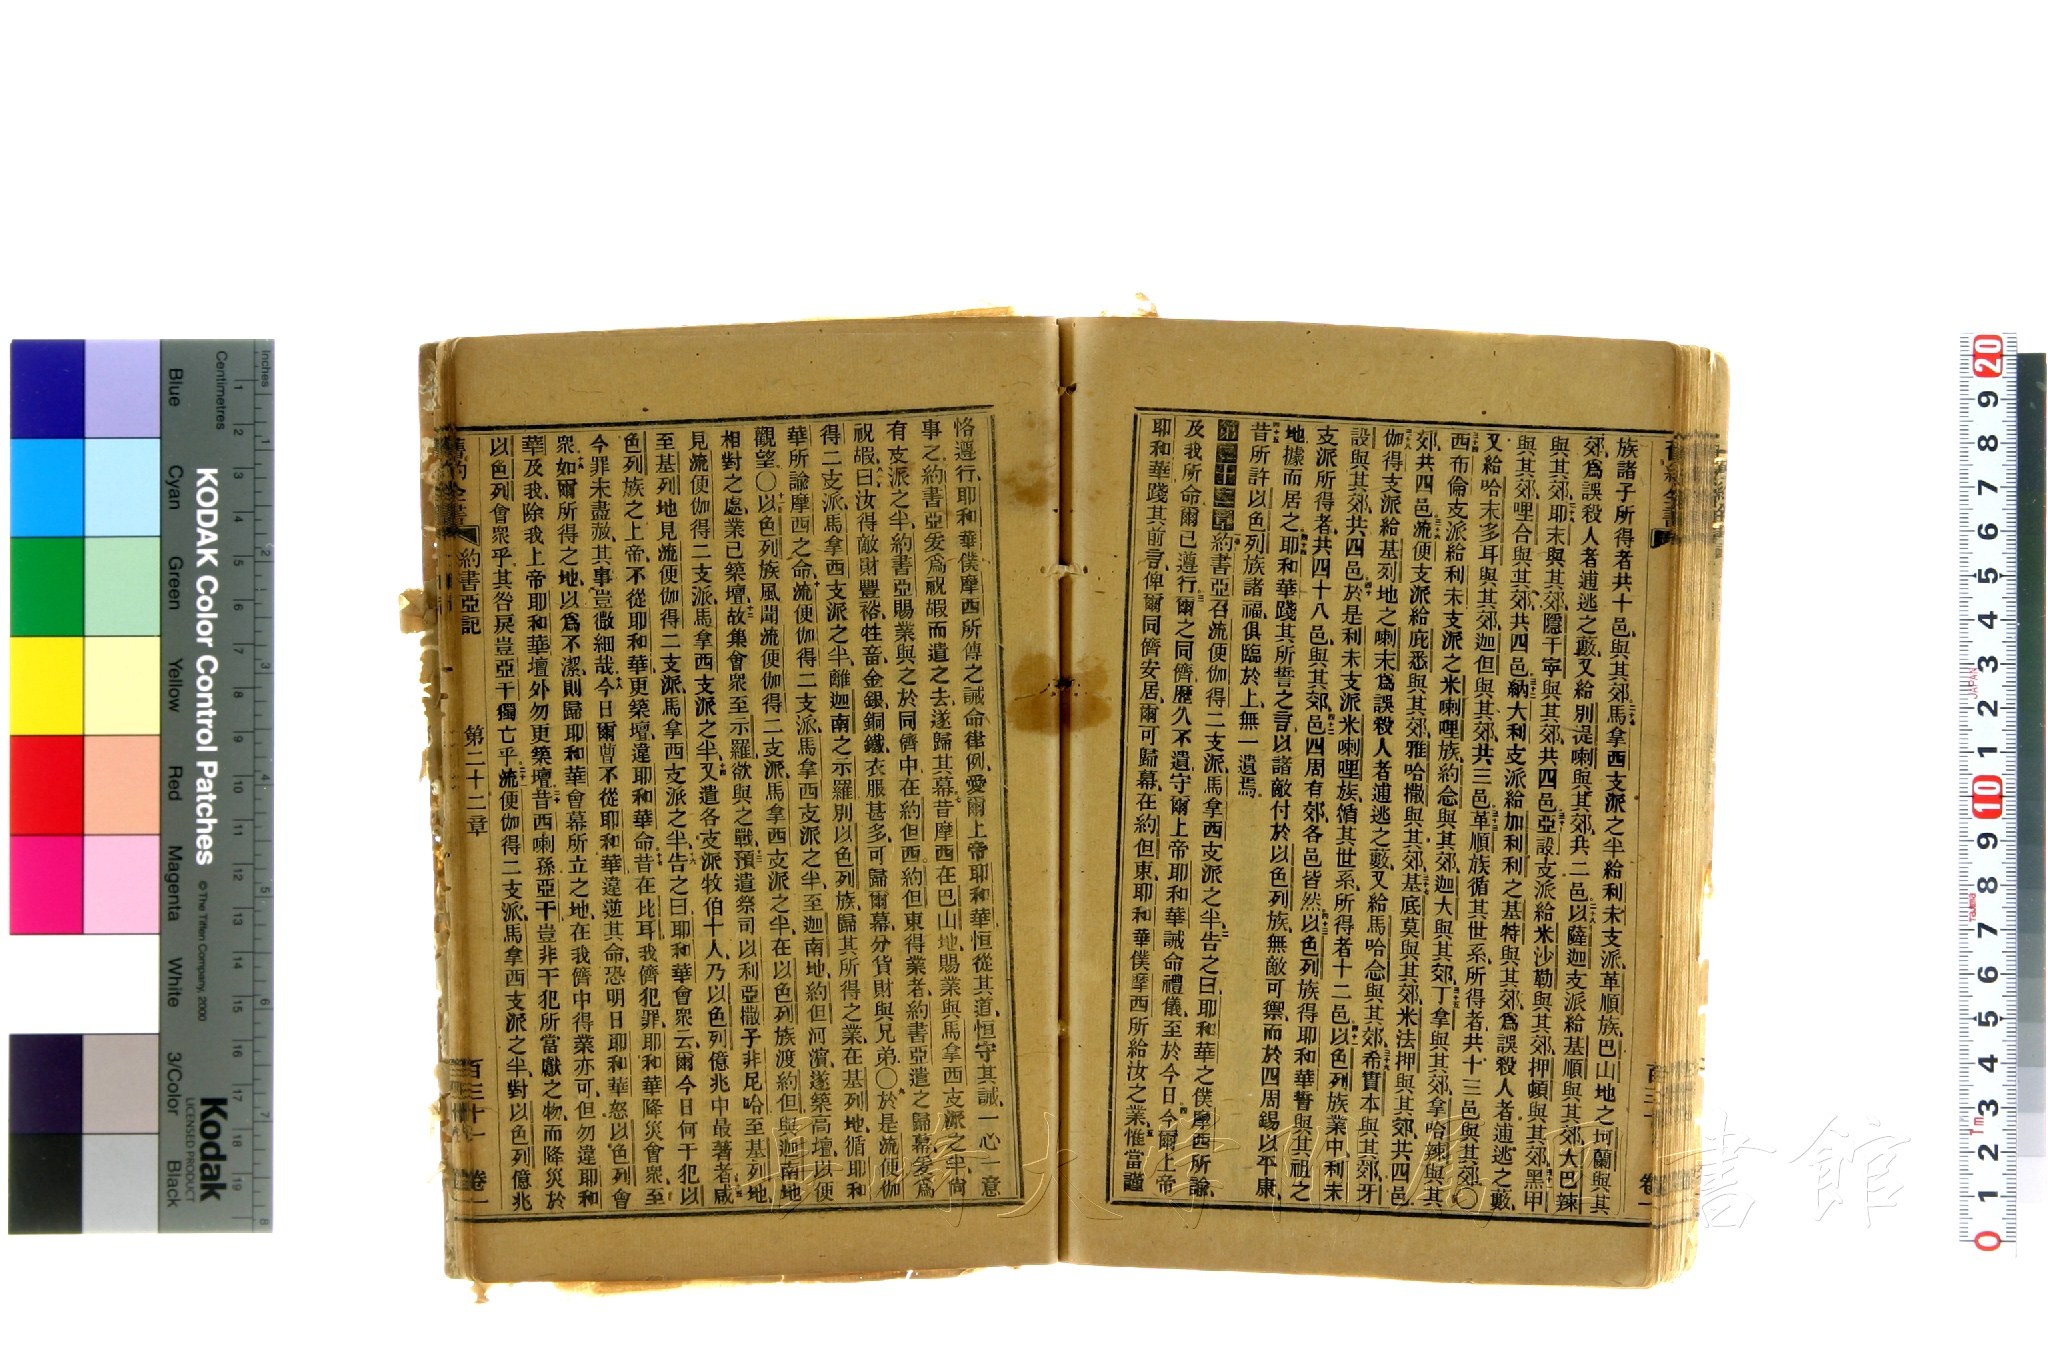 族諸子所得者共十邑與其郊馬拿西支派之半給利未支派革順族巴山地之坷蘭與其
郊爲誤殺人者逋逃之藪又給別湜喇與其郊共二邑以薩迦支派給基順與其郊大巴辣
與其郊耶末與其郊隱干寧與其郊共四邑亞設支派給米沙勒與其郊押頓與其郊黑甲
與其郊哩合與其郊共四邑納大利支派給加利利之基特與其郊爲誤殺人者逋逃之藪
又給哈末多耳與其郊迦但與其郊共三邑革順族循其世系所得者共十三邑與其郊〇
西布倫支派給利未支派之米喇哩族約念與其郊迦大與其郊丁拿與其郊拿哈辣與其
郊共四邑流便支派給庇悉與其郊雅哈撒與其郊基底莫與其郊米法押與其郊共四邑
伽得支派給基列地之喇末爲誤殺人者逋逃之藪又給馬哈念與其郊希實本與其郊牙
設與其郊共四邑於是利未支派米喇哩族循其世系所得者十二邑以色列族業中利未
支派所得者共四十八邑與其郊邑四周有郊各邑皆然以色列族得耶和華誓與其祖之
地據而居之耶和華踐其所誓之言以諸敵付於以色列族無敵可禦而於四周錫以平康
昔所許以色列族諸福俱臨於上無一遺焉
第二十二章約書亞召流便伽得二支派馬拿西支派之半告之曰耶和華之僕摩西所諭
及我所命爾已遵行爾之同儕歷久不遺守爾上帝耶和華誡命禮儀至於今日今爾上帝
耶和華踐其前言俾爾同儕安居爾可歸幕在約但東耶和華僕摩西所給汝之業惟當謹
恪遵行耶和華僕摩西所傳之誡命律例愛爾上帝耶和華恒從其道恒守其誡一心一意
事之約書亞爰爲祝嘏而遣之去遂歸其幕昔摩西在巴山地賜業與馬拿西支派之半尚
有支派之半約書亞賜業與之於同儕中在約但西約但東得業者約書亞遣之歸幕爰爲
祝嘏曰汝得敵財豐裕牲畜金銀銅鐵衣服甚多可歸爾幕分貨財與兄弟〇於是流便伽
得二支派馬拿西支派之半離迦南之示羅別以色列族歸其所得之業在基列地循耶和
華所諭摩西之命流便伽得二支派馬拿西支派之半至迦南地約但河濱遂築高壇以便
觀望〇以色列族風聞流便伽得二支派馬拿西支派之半在以色列族渡約但與迦南地
相對之處業已築壇故集會衆至示羅欲與之戰預遣祭司以利亞撒子非尼哈至基列地
見流便伽得二支派馬拿西支派之半又遣各支派牧伯十人乃以色列億兆中最著者咸
至基列地見流便伽得二支派馬拿西支派之半告之曰耶和華會衆云爾今日何干犯以
色列族之上帝不從耶和華更築壇違耶和華命昔在比耳我儕犯罪耶和華降災會衆至
今罪未盡赦其事豈微細哉今日爾曹不從耶和華違逆其命恐明日耶和華怒以色列會
衆如爾所得之地以爲不潔則歸耶和華會幕所立之地在我儕中得業亦可但勿違耶和
華及我除我上帝耶和華壇外勿更築壇昔西喇孫亞干豈非干犯所當獻之物而降災於
以色列會衆乎其咎戾豈亞干獨亡乎流便伽得二支派馬拿西支派之半對以色列億兆
舊約全書 約書亞記 第二十二章 百三十一 卷一
KODAK Color Control Patches
© The Tiffen Company, 2000
Kodak
LICENSED PRODUCT
Inches
Centimetres
Blue
Cyan
Green
Yellow
Red
Magenta
White
3/Color
Black
JAPAN